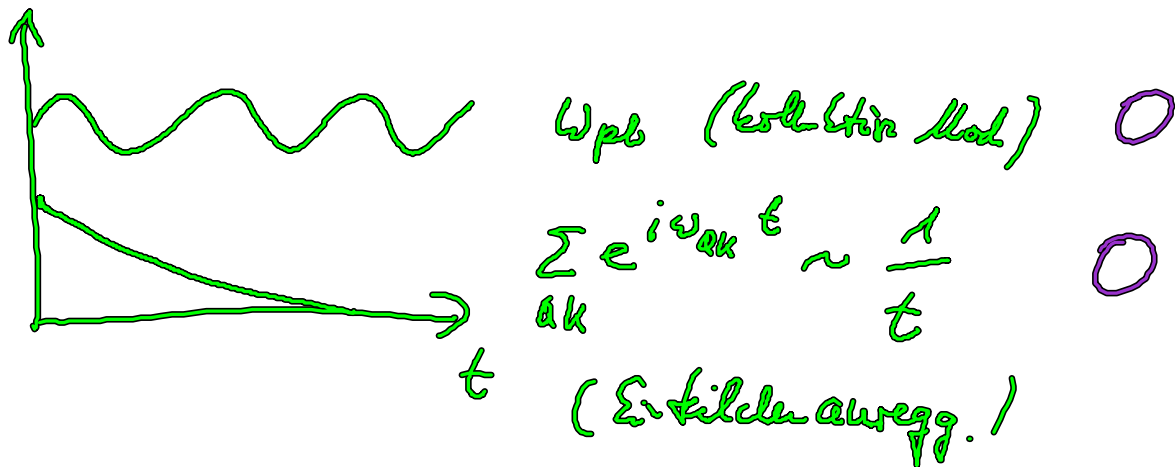 ω_pl (kollektive Mod)
∑_{QK} e^{iω_{QK} t} ~ 1/t
t
(Einteilchenanregg.)